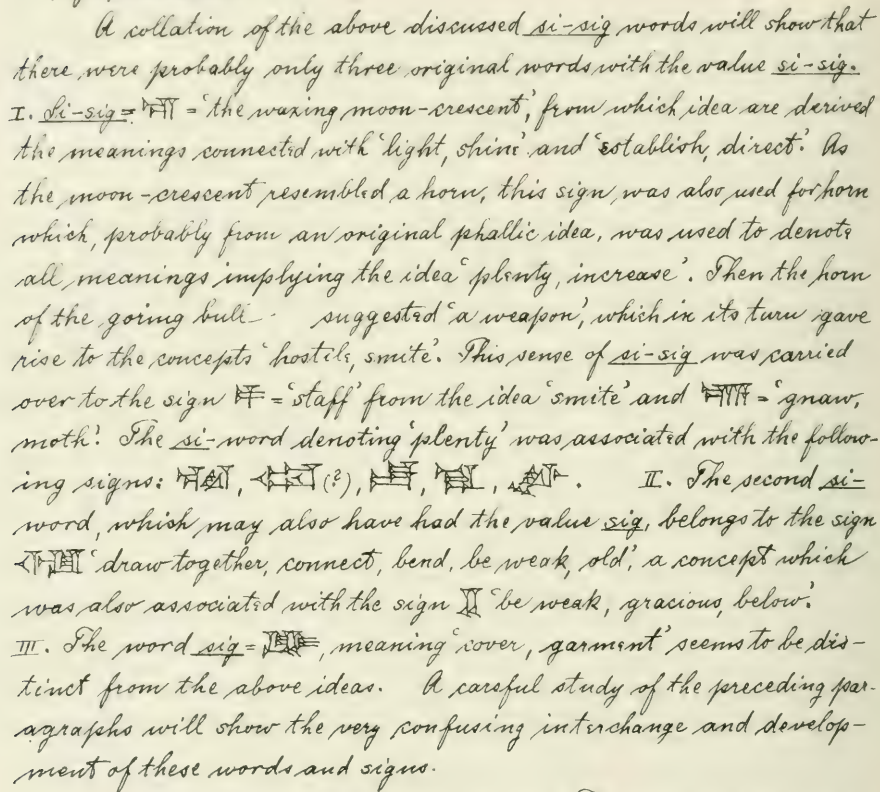 A collation of the above discussed si-sig words will show that
there were probably only three original words with the value si-sig.
I. Si-sig = = 'the waxing moon-crescent', from which idea are derived
the meanings connected with 'light, shine' and 'establish, direct'. As
the moon-crescent resembled a horn, this sign was also used for horn
which, probably from an original phallic idea, was used to denote
all meanings implying the idea 'plenty, increase'. Then the horn
of the goring bull suggested 'a weapon', which in its turn gave
rise to the concepts 'hostile, smite'. This sense of si-sig was carried
over to the sign = 'staff' from the idea 'smite' and = 'gnaw,
moth'. The si-word denoting 'plenty' was associated with the follow-
ing signs: , (?), , , . II. The second si-
word, which may also have had the value sig, belongs to the sign
'draw together, connect, bend, be weak, old', a concept which
was also associated with the sign 'be weak, gracious, below'.
III. The word sig = , meaning 'cover, garment' seems to be dis-
tinct from the above ideas. A careful study of the preceding par-
agraphs will show the very confusing interchange and develop-
ment of these words and signs.